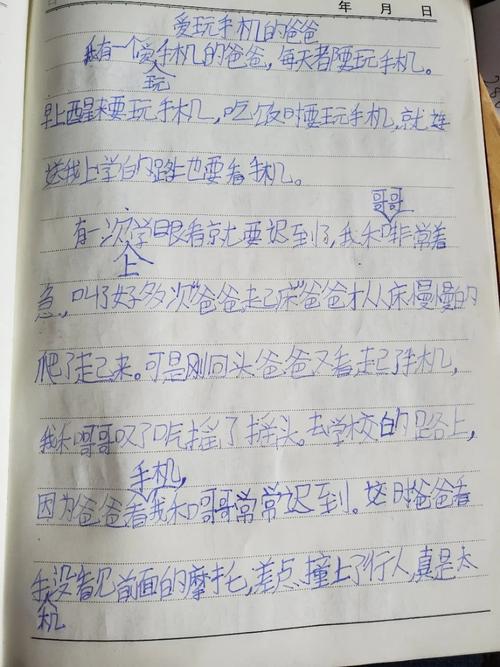 年 月 日
爱玩手机的爸爸
我有一个爱玩手机的爸爸，每天都要玩手机。
早上醒来要玩手机，吃饭时要玩手机，就连
送我上学的路上也要看手机。
有一次上学眼看就要迟到了，我和哥哥非常着
急，叫了好多次“爸爸起床”爸爸才从床慢慢的
爬了起来。可是刚回头爸爸又看起了手机，
我和哥哥叹了口气摇了摇头。去学校的路上，
因为爸爸看手机，我和哥哥常常迟到。这时爸爸看
手机没看见前面的摩托，差点撞上了行人，真是太